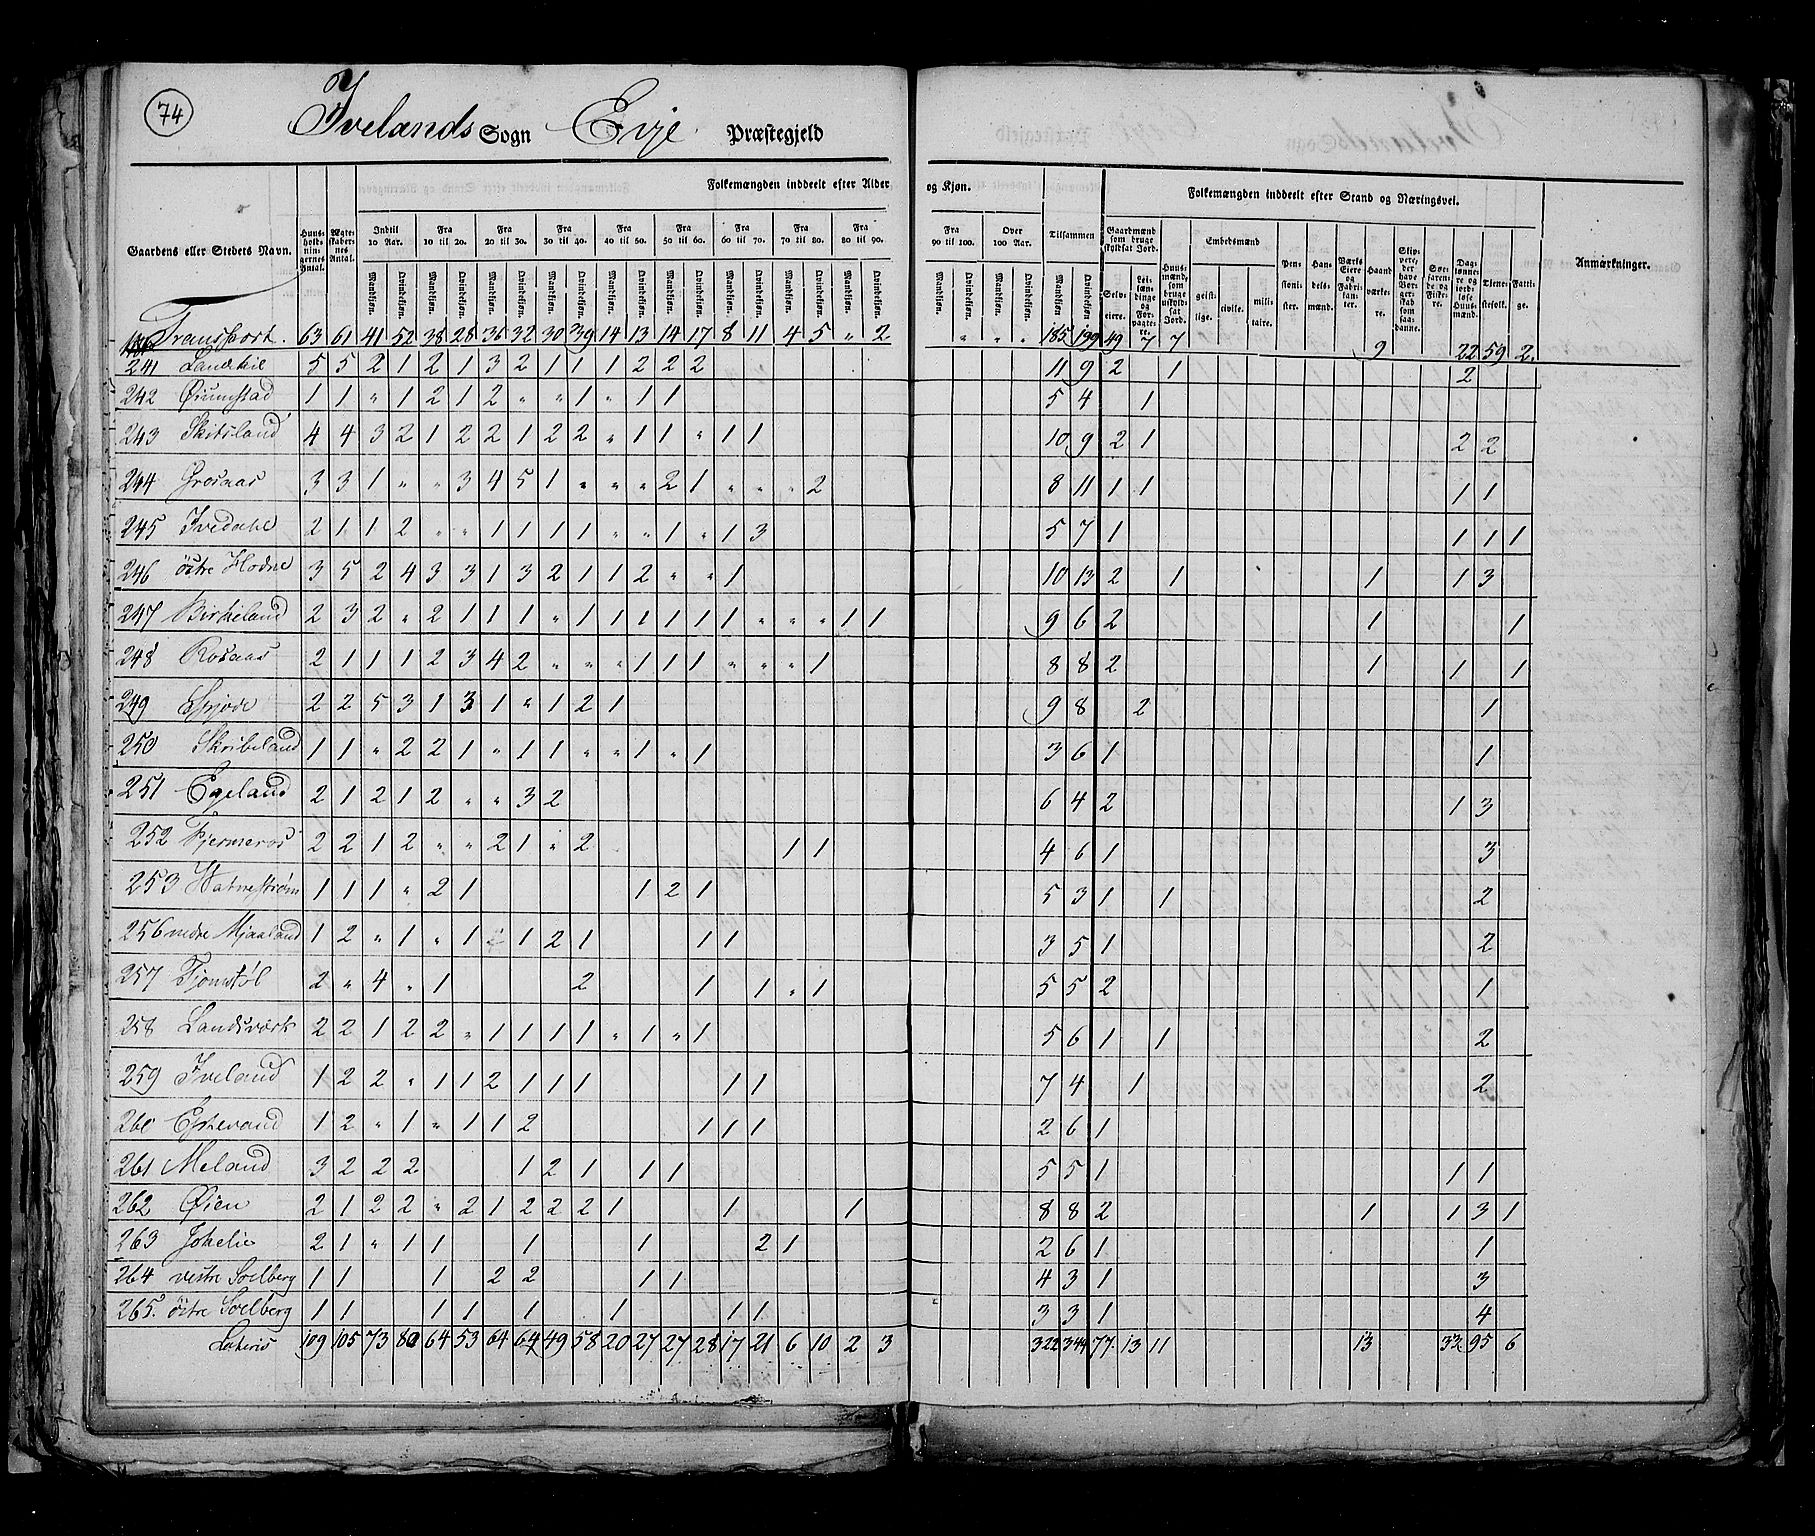 74
Ivelands Sogn Evje Præstegjeld
Gaardens eller Stedets Navn.
Huusholdningernes Antal.
Ægteskabernes Antal.
Folkemængden inddeelt efter Alder og Kjøn.
Indtil 10 Aar. Fra 10 til 20. Fra 20 til 30. Fra 30 til 40. Fra 40 til 50. Fra 50 til 60. Fra 60 til 70. Fra 70 til 80. Fra 80 til 90. Fra 90 til 100. Over 100 Aar.
Tilsammen
Mandkjøn. Qvindekjøn.
Folkemængden inddeelt efter Stand og Næringsvei.
Gaardmænd som bruge skyldsat Jord.
Selveiere. Leilændinge og Forpagtere.
Huusmænd, som bruge uskyldsat Jord.
Embedsmænd
geistlige. civile. militaire.
Pensionister. Handelsmænd. Værks Eiere og Fabrikanter. Haandværkere.
Søefarende og Fiskere. Daglønnere og jordløse Huusmænd. Tienestefolk. Fattige.
Anmærkninger.
Transport. 63 61 41 52 38 28 36 32 30 39 14 13 14 17 8 11 4 5 " 2 " " " 185 199 49 7 7 9 22 59 2
241 Landskil 5 5 2 1 2 1 3 2 1 1 1 2 2 2 11 9 2 1 2
242 Øiumstad 1 1 " 1 2 1 2 " " 1 " 1 1 5 4 1
243 Skitsland 4 4 3 2 1 2 2 1 2 2 " 1 1 " 1 1 10 9 2 1 2 2
244 Grosaas 3 3 1 " " 3 4 5 1 " " " 2 1 " " " 2 8 11 1 1 1 1
245 Ivedahl 2 1 1 2 " " 1 1 1 1 " " 1 " 1 3 5 7 1 1 1 1
246 östre Hodne 3 5 2 4 3 3 1 3 2 1 1 2 " " 1 10 13 2 1 1 1 3
247 Birkeland 2 3 2 " 2 1 1 1 " 1 1 1 1 1 1 " " " 1 1 9 6 2 1 1
248 Rosaas 2 1 1 1 2 3 4 2 " " " 1 1 1 " " " 1 8 8 2 1 1 1
249 2 2 5 3 1 3 1 " 1 2 1 9 8 2 1
250 Skribeland 1 1 " 2 2 1 " 1 1 " " 1 " 1 3 6 1 1
251 Egeland 2 1 2 1 2 " " 3 2 6 4 2 1 3
252 Fjermeros 2 2 1 2 " " 2 1 " 2 1 1 4 6 1 3
253 Watnestrøm 1 1 1 " 2 1 1 2 1 5 3 1 1 2
256 nedre Mjaaland 1 2 " 1 " 1 1 2 1 1 1 3 5 1 2
257 Fjomstøl 2 " 4 " 1 2 1 1 " 1 5 5 2 1
258 Landsværk 2 2 1 2 2 " 1 1 1 1 " 1 " 1 5 6 1 1 2
259 Iveland 1 2 2 " 1 1 2 1 1 1 1 1 7 4 1 2
260 Eptevand 1 2 " 1 " 1 1 2 1 1 1 2 6 1
261 Meland 3 2 2 2 1 2 1 1 1 5 5 1 1 1
262 Øien 2 1 2 2 " 2 1 2 2 2 1 1 1 8 8 2 1 1 3 1
263 Jokelie 2 1 " 1 1 1 1 2 1 2 6 1 1
264 vestre Soelberg 1 1 1 2 2 1 1 4 3 1 3
265 östre Soelberg 1 1 1 1 1 1 1 1 3 3 1 4
Lateris 109 105 73 80 64 53 64 64 49 58 20 27 27 28 17 21 6 10 2 3 322 344 77 13 11 13 33 95 6